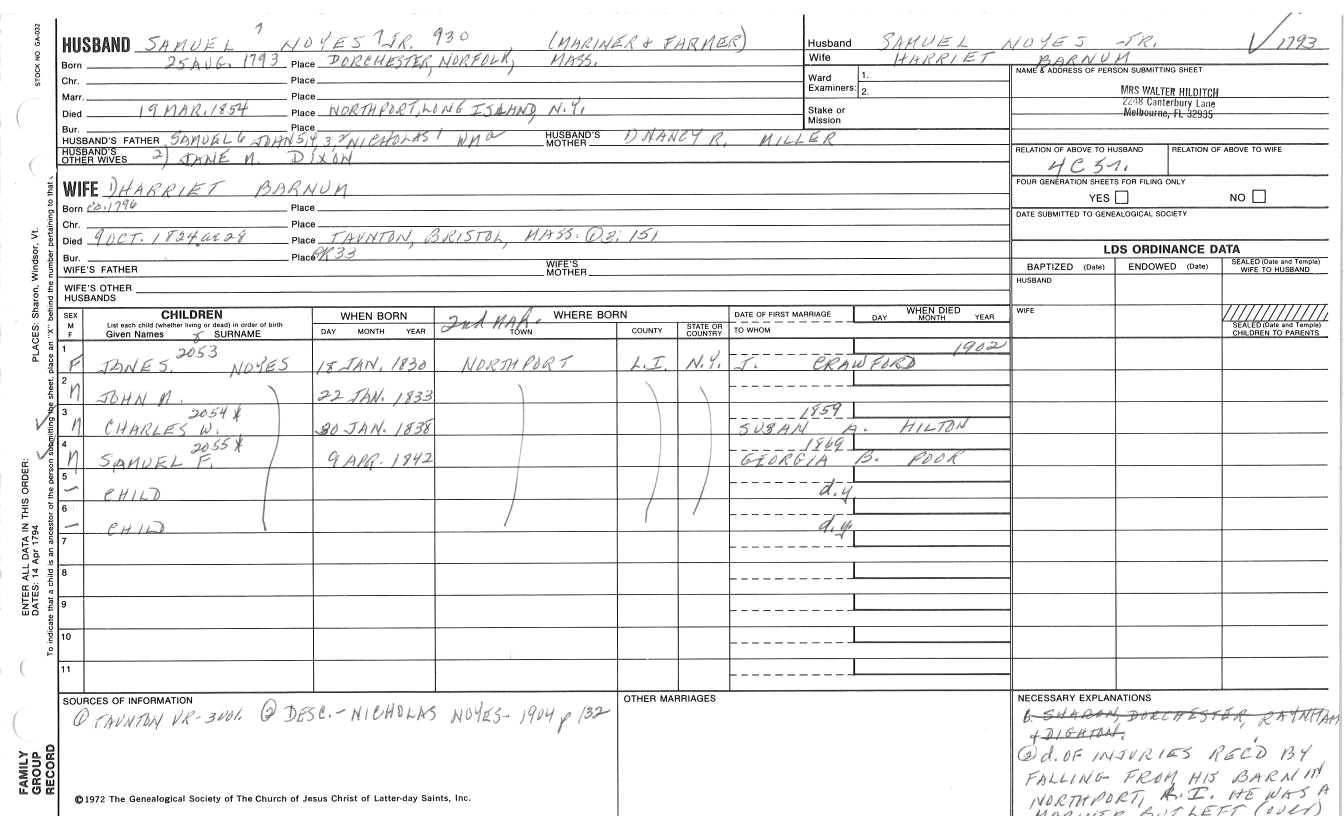 STOCK NO. GA-032
HUSBAND SAMUEL 7 NOYES JR. 930 (MARINER & FARMER)
Born 25 AUG. 1793 Place DORCHESTER, NORFOLK, MASS.
Chr. Place
Marr. Place
Died 19 MAR. 1854 Place NORTHPORT, LONG ISLAND, N.Y.
Bur. Place
HUSBAND'S FATHER SAMUEL 6 JOHN 5, 4, 3, 2 NICHOLAS 1 Wm a HUSBAND'S MOTHER 1) NANCY R. MILLER
HUSBAND'S OTHER WIVES 2) JANE M. DIXON
Husband SAMUEL NOYES JR. √1793
Wife HARRIET BARNUM
Ward Examiners: 1.
2.
Stake or Mission
NAME & ADDRESS OF PERSON SUBMITTING SHEET
MRS WALTER HILDITCH
2248 Canterbury Lane
Melbourne, FL 32935
RELATION OF ABOVE TO HUSBAND RELATION OF ABOVE TO WIFE
4C 5r.
FOUR GENERATION SHEETS FOR FILING ONLY
YES NO
DATE SUBMITTED TO GENEALOGICAL SOCIETY
WIFE 1) HARRIET BARNUM
Born ca. 1796 Place
Chr. Place
Died 9 OCT. 1824 ae 28 Place TAUNTON, BRISTOL, MASS. ① 3; 151
Bur. Place GR33
WIFE'S FATHER WIFE'S MOTHER
WIFE'S OTHER HUSBANDS
LDS ORDINANCE DATA
BAPTIZED (Date) ENDOWED (Date) SEALED (Date and Temple) WIFE TO HUSBAND
HUSBAND
WIFE
SEALED (Date and Temple) CHILDREN TO PARENTS
SEX M F CHILDREN WHEN BORN WHERE BORN DATE OF FIRST MARRIAGE WHEN DIED
List each child (whether living or dead) in order of birth
Given Names 8 SURNAME DAY MONTH YEAR 2nd MAR. TOWN COUNTY STATE OR COUNTRY TO WHOM DAY MONTH YEAR
1 2053 1902
F JANE S. NOYES 18 JAN. 1830 NORTHPORT L.I. N.Y. J. CRAWFORD
2
M JOHN M. 22 JAN. 1833
3 2054 * 1859
M CHARLES W. 30 JAN. 1838 SUSAN A. HILTON
4 2055 * 1869
M SAMUEL F. 9 APR. 1842 GEORGIA B. POOR
5
– CHILD d.y
6
– CHILD d.y.
7
8
9
10
11
SOURCES OF INFORMATION
① TAUNTON VR-3vol. ② DESC.-NICHOLAS NOYES-1904 p 132
OTHER MARRIAGES
NECESSARY EXPLANATIONS
SHARON, DORCHESTER, RAYNHAM
& DIGHTON.
② d. OF INJURIES REC'D BY
FALLING FROM HIS BARN IN
NORTHPORT, L.I. HE WAS A
MARINER BUT LEFT (over)
©1972 The Genealogical Society of The Church of Jesus Christ of Latter-day Saints, Inc.
FAMILY GROUP RECORD
ENTER ALL DATA IN THIS ORDER:
DATES: 14 Apr 1794
PLACES: Sharon, Windsor, Vt.
To indicate that a child is an ancestor of the person submitting the sheet, place an "X" behind the number pertaining to that